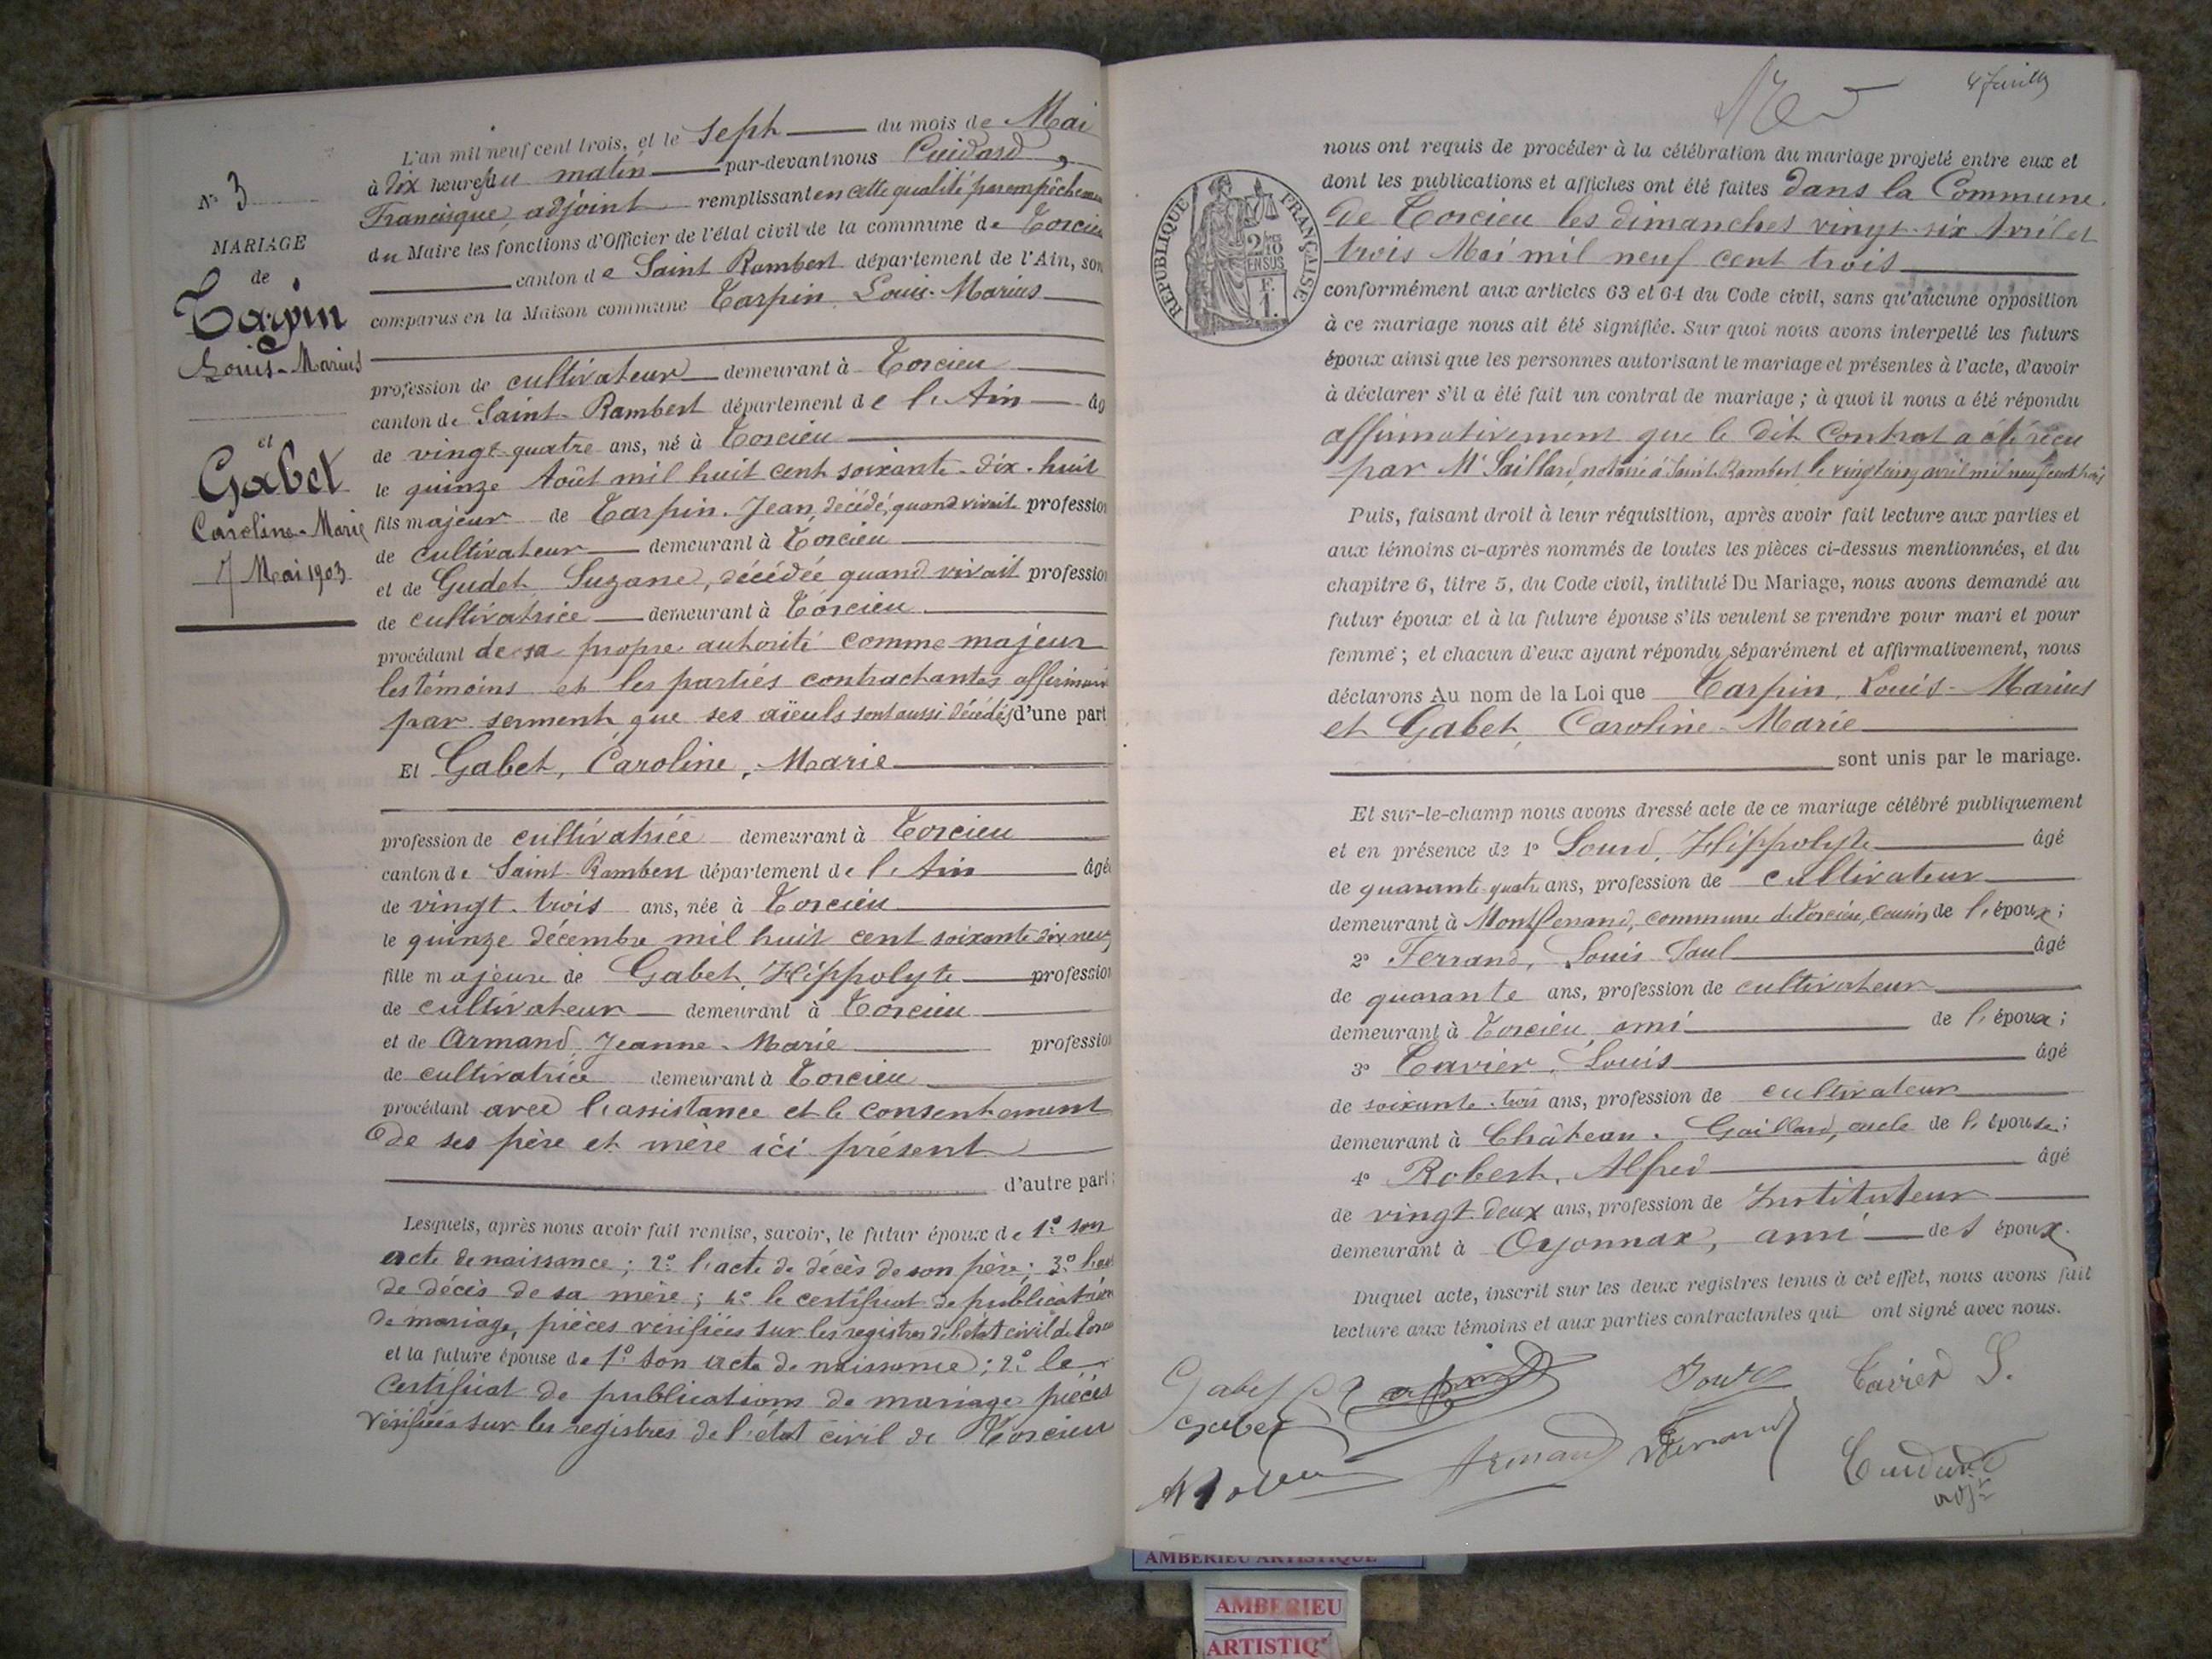 N° 3
MARIAGE
de
Tarpin
Louis-Marius
et
Gabet
Caroline-Marie
7 Mai 1903
L'an mil neuf cent trois, et le Sept du mois de Mai
à dix heures du matin par-devant nous Cuidard,
Francisque, adjoint remplissant en cette qualité par empêchement
du Maire les fonctions d'Officier de l'état civil de la commune de Torcieu
canton de Saint Rambert département de l'Ain, son
comparus en la Maison commune Tarpin, Louis-Marius
profession de cultivateur demeurant à Torcieu
canton de Saint-Rambert département de l'Ain âg
de vingt-quatre ans, né à Torcieu
le quinze Août mil huit cent soixante-dix-huit
fils majeur de Tarpin Jean, décédé, quand vivait profession
de cultivateur demeurant à Torcieu
et de Gudet Suzane, décédée quand vivait profession
de cultivatrice demeurant à Torcieu
procédant de sa propre autorité comme majeur
les témoins et les parties contractantes affirmant
par serment que ses aïeuls sont aussi décédés d'une part
Et Gabet, Caroline, Marie
profession de cultivatrice demeurant à Torcieu
canton de Saint-Rambert département de l'Ain âgée
de vingt-trois ans, née à Torcieu
le quinze décembre mil huit cent soixante dix neuf
fille majeure de Gabet, Hippolyte profession
de cultivateur demeurant à Torcieu
et de Armand, Jeanne-Marie profession
de cultivatrice demeurant à Torcieu
procédant avec l'assistance et le consentement
de ses père et mère ici présent
d'autre part;
Lesquels, après nous avoir fait remise, savoir, le futur époux de 1° son
acte de naissance; 2° l'acte de décès de son père; 3° l'acte
de décès de sa mère; 4° le certificat de publication
de mariage, pièces vérifiées sur les registres de l'état civil de Torcieu
et la future épouse de 1° son acte de naissance; 2° le
certificat de publications de mariage pièces
vérifiées sur les registres de l'état civil de Torcieu
RÉPUBLIQUE FRANÇAISE
2/10
EN SUS
F.
1.
nous ont requis de procéder à la célébration du mariage projeté entre eux et
dont les publications et affiches ont été faites dans la Commune
de Torcieu les dimanches vingt-six Avril et
trois Mai mil neuf cent trois
conformément aux articles 63 et 64 du Code civil, sans qu'aucune opposition
à ce mariage nous ait été signifiée. Sur quoi nous avons interpellé les futurs
époux ainsi que les personnes autorisant le mariage et présentes à l'acte, d'avoir
à déclarer s'il a été fait un contrat de mariage; à quoi il nous a été répondu
affirmativement que le dit Contrat a été reçu
par Me Saillard, notaire à Saint-Rambert, le vingt cinq avril mil neuf cent trois
Puis, faisant droit à leur réquisition, après avoir fait lecture aux parties et
aux témoins ci-après nommés de toutes les pièces ci-dessus mentionnées, et du
chapitre 6, titre 5, du Code civil, intitulé Du Mariage, nous avons demandé au
futur époux et à la future épouse s'ils veulent se prendre pour mari et pour
femme; et chacun d'eux ayant répondu séparément et affirmativement, nous
déclarons Au nom de la Loi que Tarpin, Louis-Marius
et Gabet, Caroline-Marie
sont unis par le mariage.
Et sur-le-champ nous avons dressé acte de ce mariage célébré publiquement
et en présence de 1° Sourd, Hippolyte âgé
de quarante-quatre ans, profession de cultivateur
demeurant à Montferrand, commune de Torcieu, cousin de l'époux;
2° Ferrand, Louis Paul âgé
de quarante ans, profession de cultivateur
demeurant à Torcieu, ami de l'époux;
3° Tavier, Louis âgé
de soixante-trois ans, profession de cultivateur
demeurant à Château-Gaillard, oncle de l'épouse;
4° Robert, Alfred âgé
de vingt-deux ans, profession de Instituteur
demeurant à Oyonnax, ami des époux.
Duquel acte, inscrit sur les deux registres tenus à cet effet, nous avons fait
lecture aux témoins et aux parties contractantes qui ont signé avec nous.
Gabet Tarpin Sourd Tavier L.
Gabet
Armand Ferrand Cuidard
adj
AMBERIEU ARTISTIQUE
AMBERIEU
ARTISTIQ